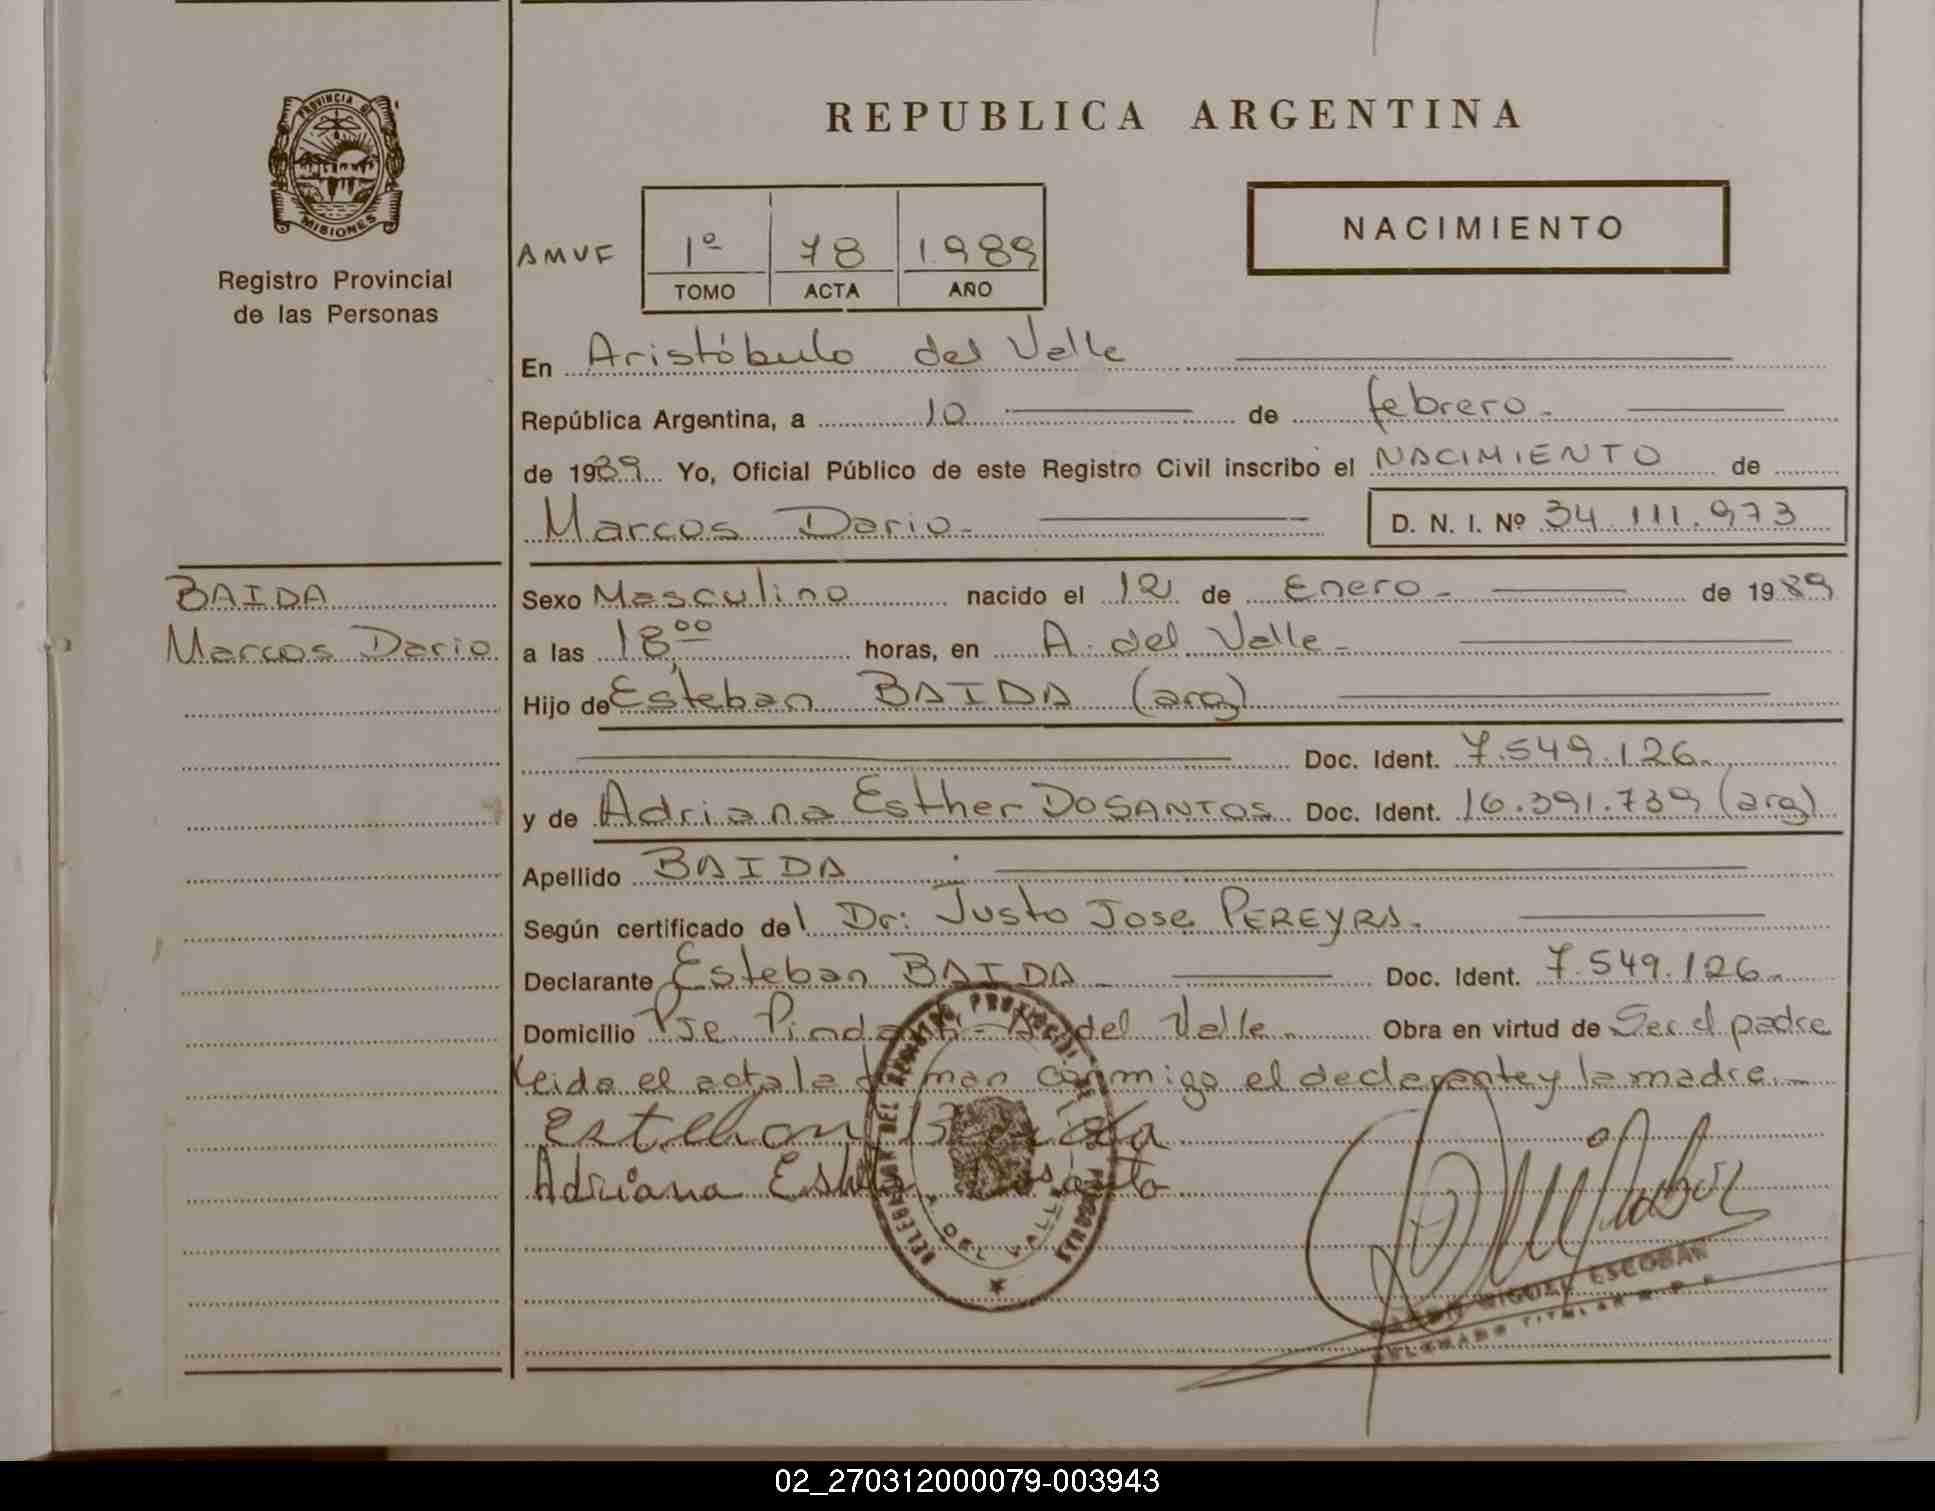 PROVINCIA DE
MISIONES
Registro Provincial
de las Personas
REPUBLICA ARGENTINA
NACIMIENTO
AMVF
1º 78 1989
TOMO ACTA AÑO
En Aristóbulo del Valle
República Argentina, a 10 de febrero.
de 1989 Yo, Oficial Público de este Registro Civil inscribo el NACIMIENTO de
Marcos Dario. D. N. I. Nº 34.111.973
BAIDA
Marcos Dario
Sexo Masculino nacido el 12 de Enero. de 1989
a las 18,00 horas, en A. del Valle.
Hijo de Esteban BAIDA (arg)
Doc. Ident. 7.549.126.
y de Adriana Esther DOSANTOS Doc. Ident. 16.391.739 (arg)
Apellido BAIDA
Según certificado del Dr: Justo Jose PEREYRA.
Declarante Esteban BAIDA Doc. Ident. 7.549.126.
Domicilio Pje Pindaiti - A. del Valle. Obra en virtud de Ser el padre
Leida el acta la firman conmigo el declarante y la madre.
Esteban Baida
Adriana Esther Dosanto
DELEGACION DEL REGISTRO PROVINCIAL DE LAS PERSONAS
A. DEL VALLE
MIGUEL ESCOBAR
DELEGADO TITULAR R.P.P.
02_270312000079-003943